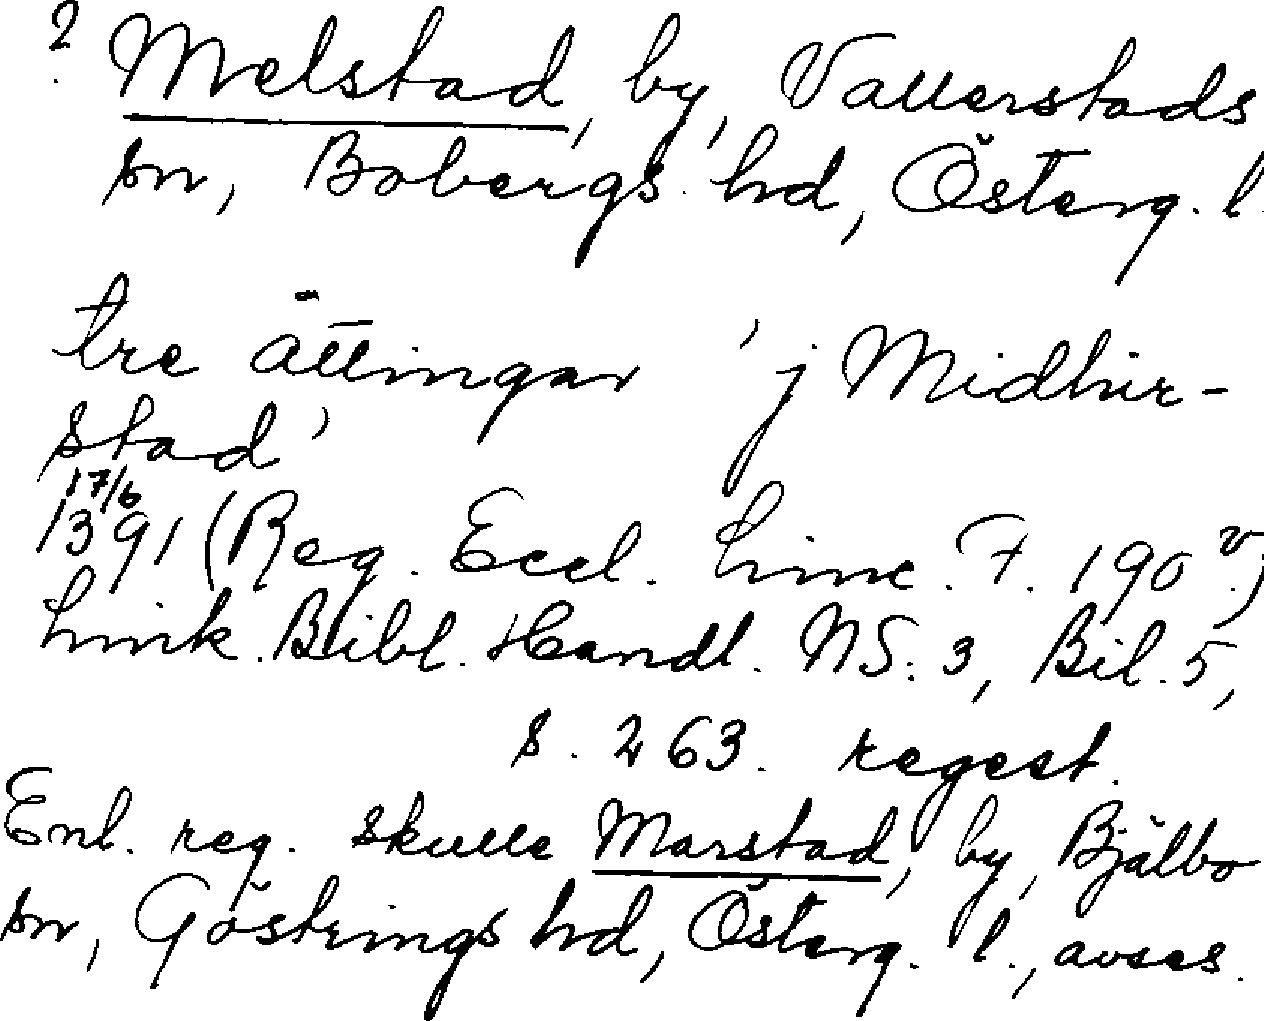 ? Melstad, by, Vallerstads
sn, Bobergs hd, Österg. l.
tre ättingar 'j Midhir-
stad'
17/6
1391 (Reg. Eccl. Linc. F. 190 v.)
Link. Bibl. Handl. NS. 3, Bil. 5,
s. 263. regest.
Enl. reg. skulle Marstad, by, Bjälbo
sn, Göstrings hd, Österg. l., avses.